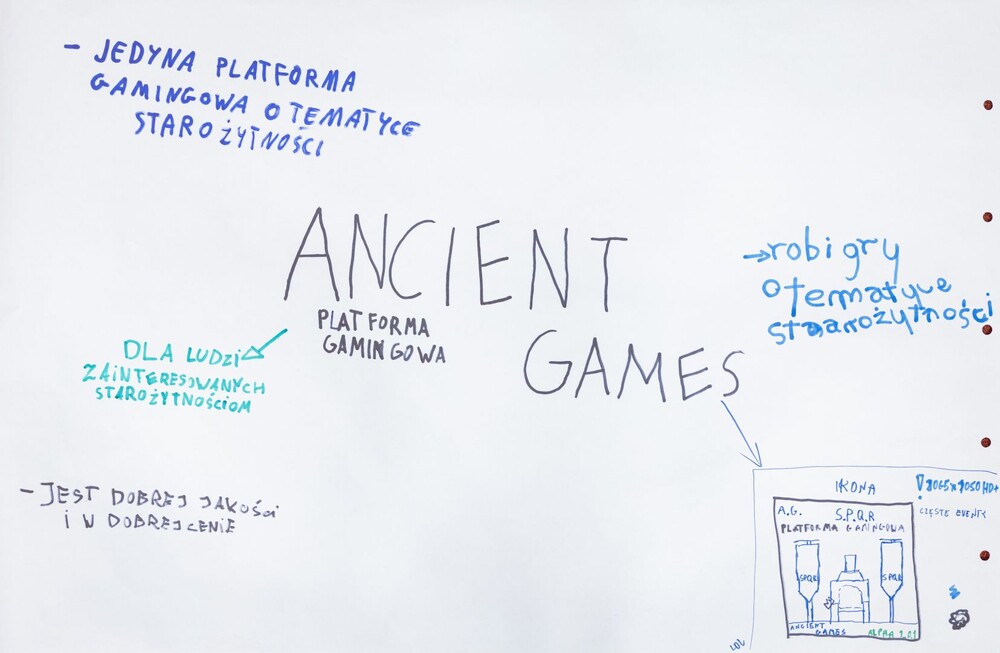 - JEDYNA PLATFORMA
GAMINGOWA O TEMATYCE
STAROŻYTNOŚCI
ANCIENT
GAMES
PLATFORMA
GAMINGOWA
→ robi gry
o tematyce
staarożytności
DLA LUDZI
ZAINTERESOWANYCH
STAROŻYTNOŚCIOM
- JEST DOBREJ JAKOŚCI
I W DOBREJ CENIE
IKONA
A.G. S.P.Q.R
PLATFORMA GAMINGOWA
SPQR SPQR
ANCIENT
GAMES
ALPHA 1.01
CZĘSTE EVENTY
LOL